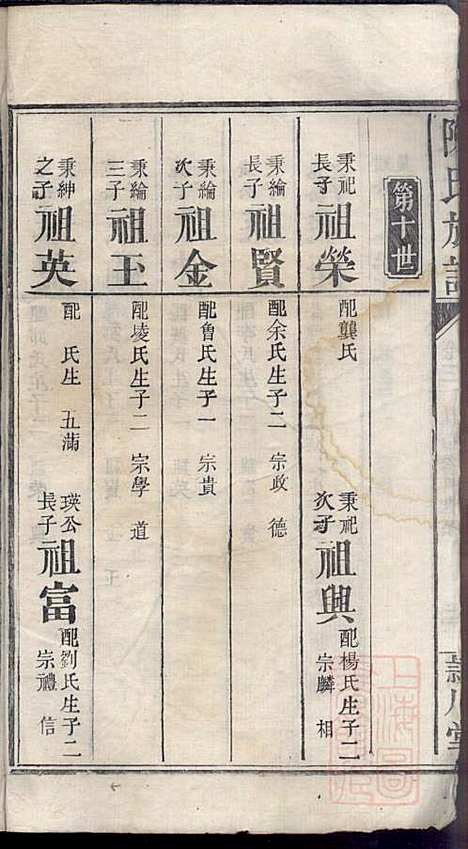 陳氏族譜
潁川堂
第十世
秉祀長子 祖榮 配龔氏
秉祀次子 祖興 配楊氏生子二 宗麟 相
秉綸長子 祖賢 配余氏生子二 宗政 德
秉綸次子 祖金 配魯氏生子一 宗貴
秉綸三子 祖玉 配凌氏生子二 宗學 道
秉紳之子 祖英 配 氏生 五滿
瑛公長子 祖富 配劉氏生子二 宗禮 信